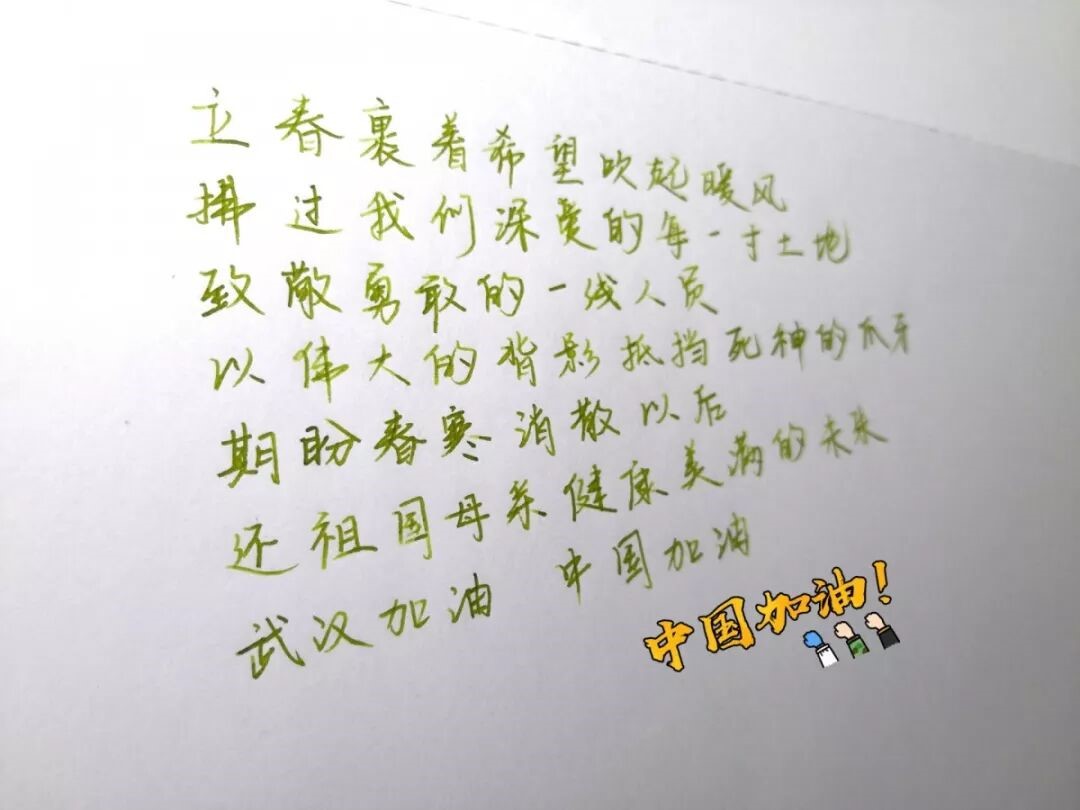 立春裹着希望吹起暖风
拂过我们深爱的每一寸土地
致敬勇敢的一线人员
以伟大的背影抵挡死神的爪牙
期盼春寒消散以后
还祖国母亲健康美满的未来
武汉加油 中国加油
中国加油!